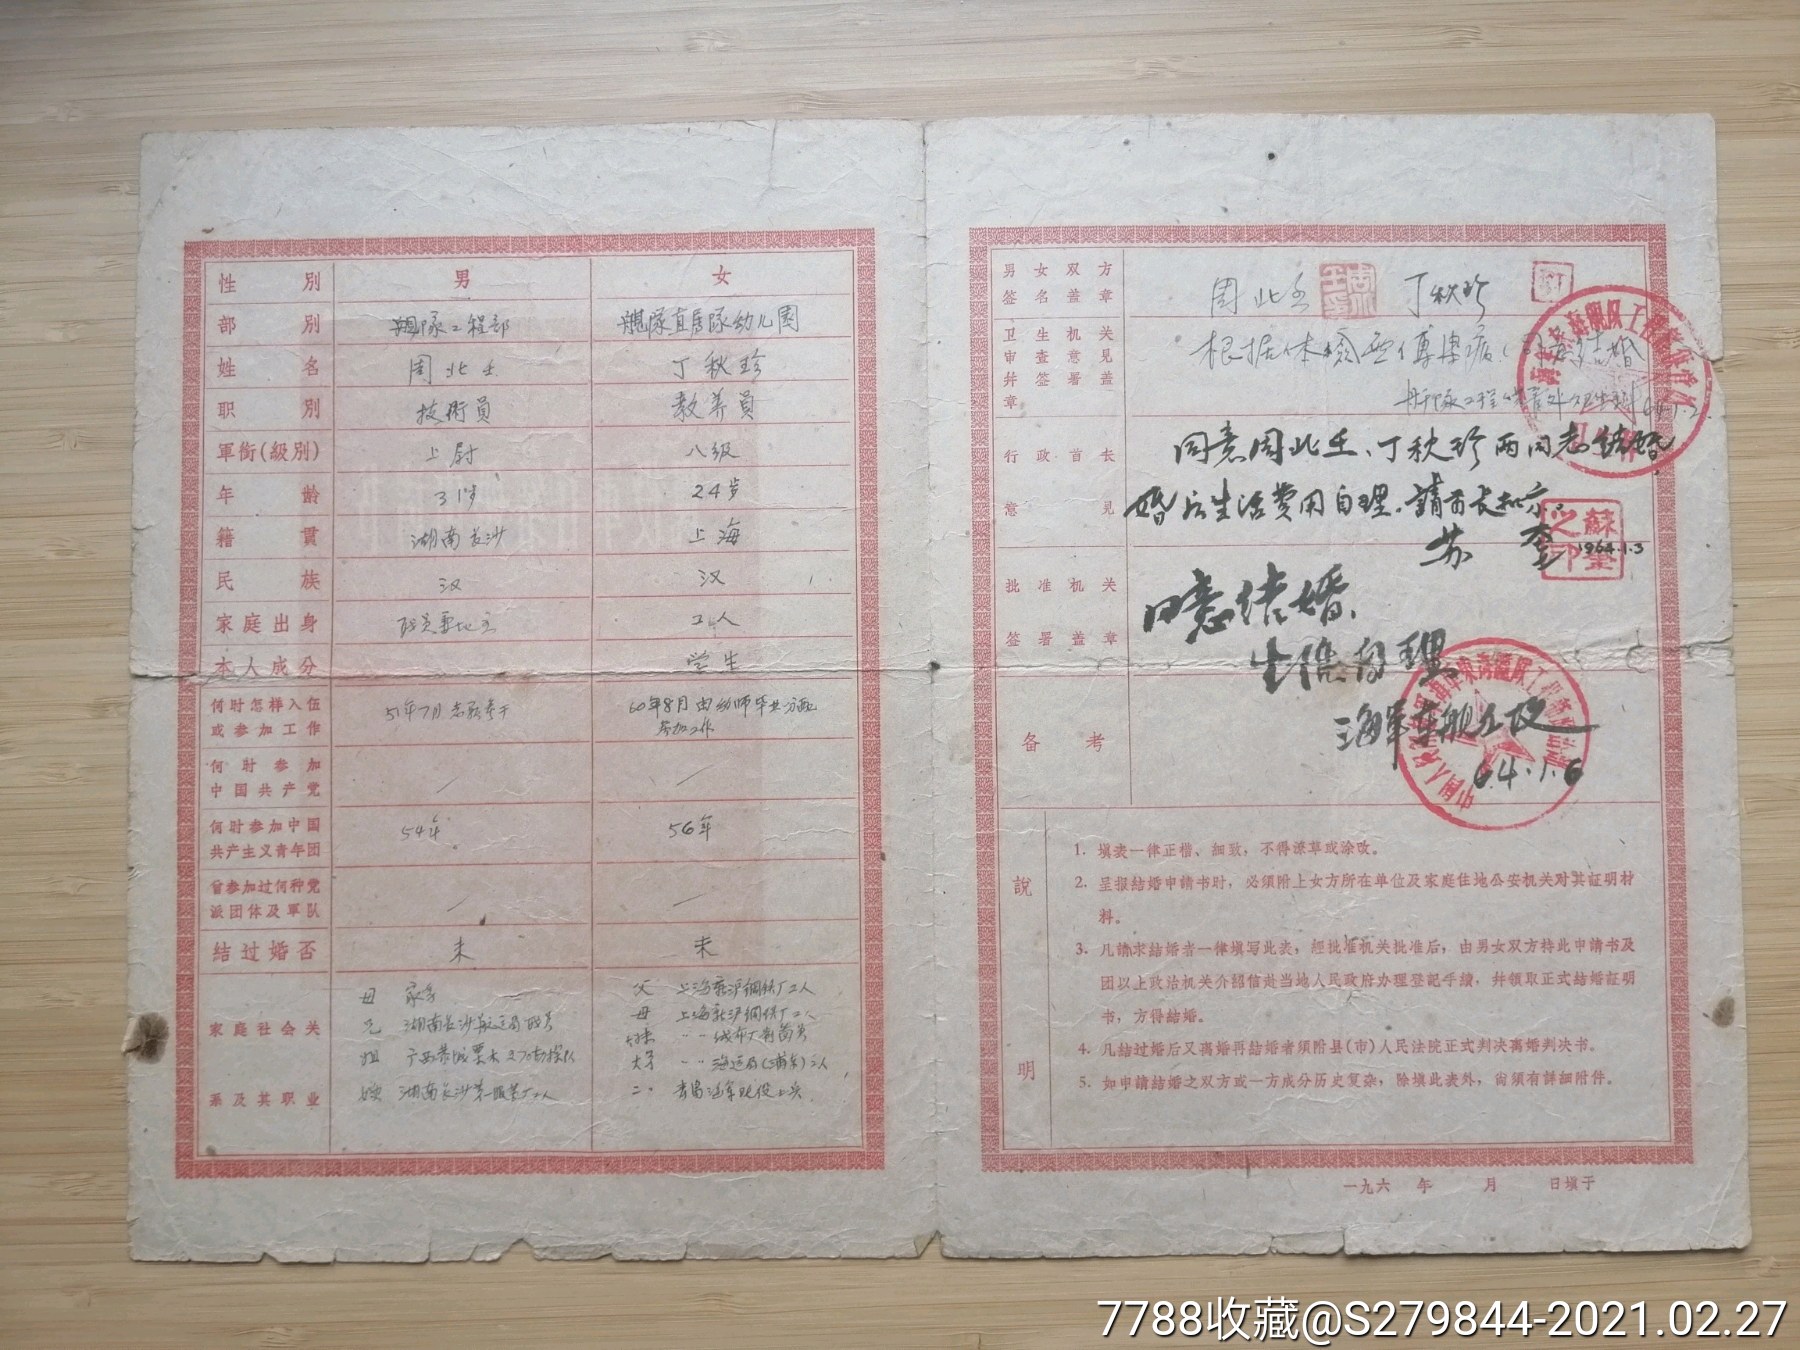 性別 男 女
部別 舰隊工程部 舰隊直属隊幼儿園
姓名 周北壬 丁秋珍
职別 技術員 教养員
軍銜(級別) 上尉 八級
年齡 31岁 24岁
籍貫 湖南长沙 上海
民族 汉 汉
家庭出身 工人
本人成分 学生
何时怎样入伍或参加工作 51年7月 60年8月由幼师毕业分配参加工作
何时参加中国共产党 / /
何时参加中国共产主义青年团 54年 56年
曾参加过何种党派团体及軍队 / /
结过婚否 未 未
家庭社会关系及其职业
母 家务
兄 湖南长沙航运局
姐
湖南长沙第一服装厂工人
父 上海新沪鋼铁厂工人
母 上海新沪鋼铁厂工人
男女双方签名盖章 周北壬 丁秋珍
卫生机关审查意见并签署盖章 根据体檢无傳染病
行政首长意见 同意周北壬、丁秋珍两同志結婚
婚后生活费用自理。請首长批示。
苏奎 1964.1.3
蘇奎之印
批准机关签署盖章 同意结婚.
自理
64.1.6
备考
說明
1. 填表一律正楷、細致，不得潦草或涂改。
2. 呈报結婚申請书时，必須附上女方所在单位及家庭住地公安机关对其証明材
料。
3. 凡請求結婚者一律填写此表，經批准机关批准后，由男女双方持此申請书及
团以上政治机关介紹信赴当地人民政府办理登記手續，并領取正式結婚証明
书，方得結婚。
4. 凡結过婚后又离婚再結婚者須附县(市)人民法院正式判决离婚判决书。
5. 如申請結婚之双方或一方成分历史复杂，除填此表外，尙須有詳細附件。
一九六 年 月 日填于
7788收藏@S279844-2021.02.27